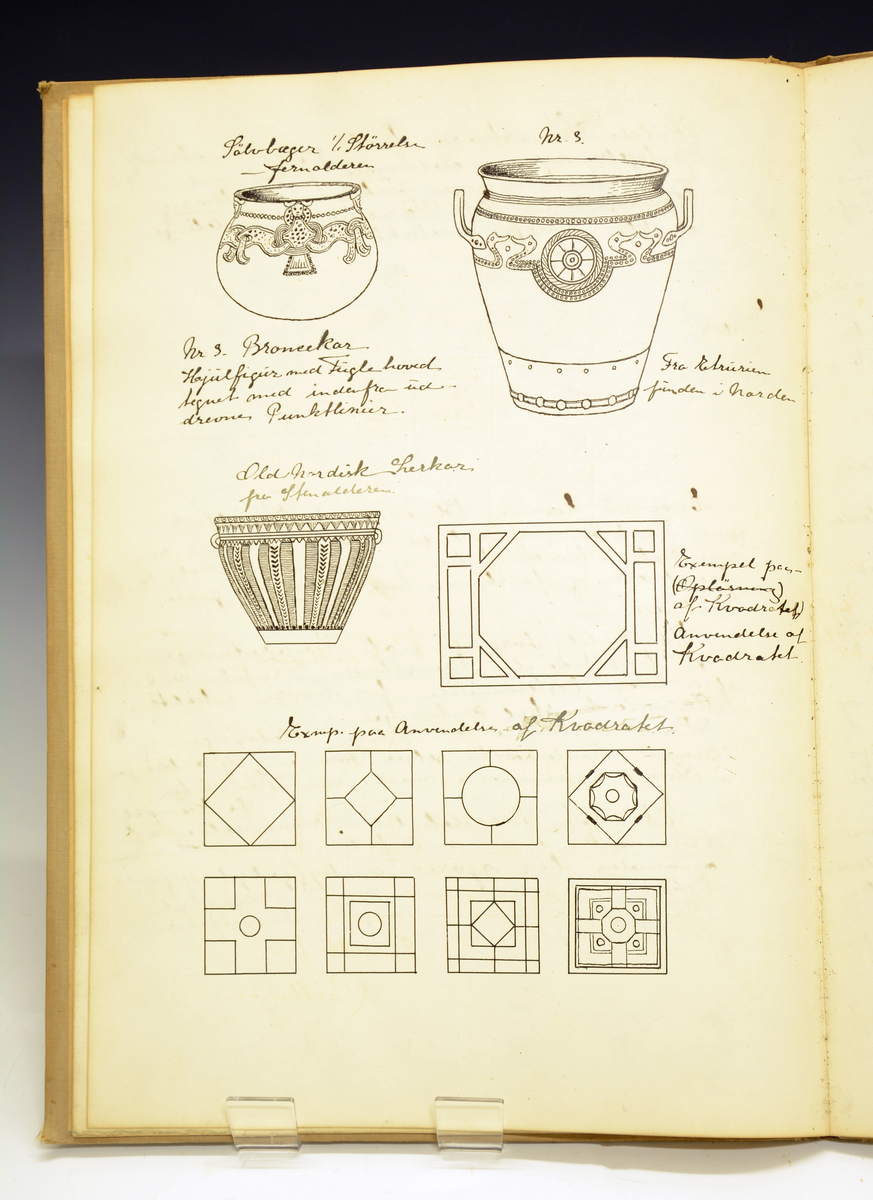 Sölvbæger 1/1 Störrelse
Jernalderen
Nr. 3.
Nr 3. Bronsekar
Hjulfigur med Fuglehoved
tegnet med indenfra ud-
drevne Punktlinier.
Fra Etrurien
funden i Norden
Old Nordisk Lerkar
fra Stenalderen.
Exempel paa
(Oplösning
af Kvadratet)
Anvendelse af
Kvadratet.
Exmp. paa Anvendelse af Kvadratet.